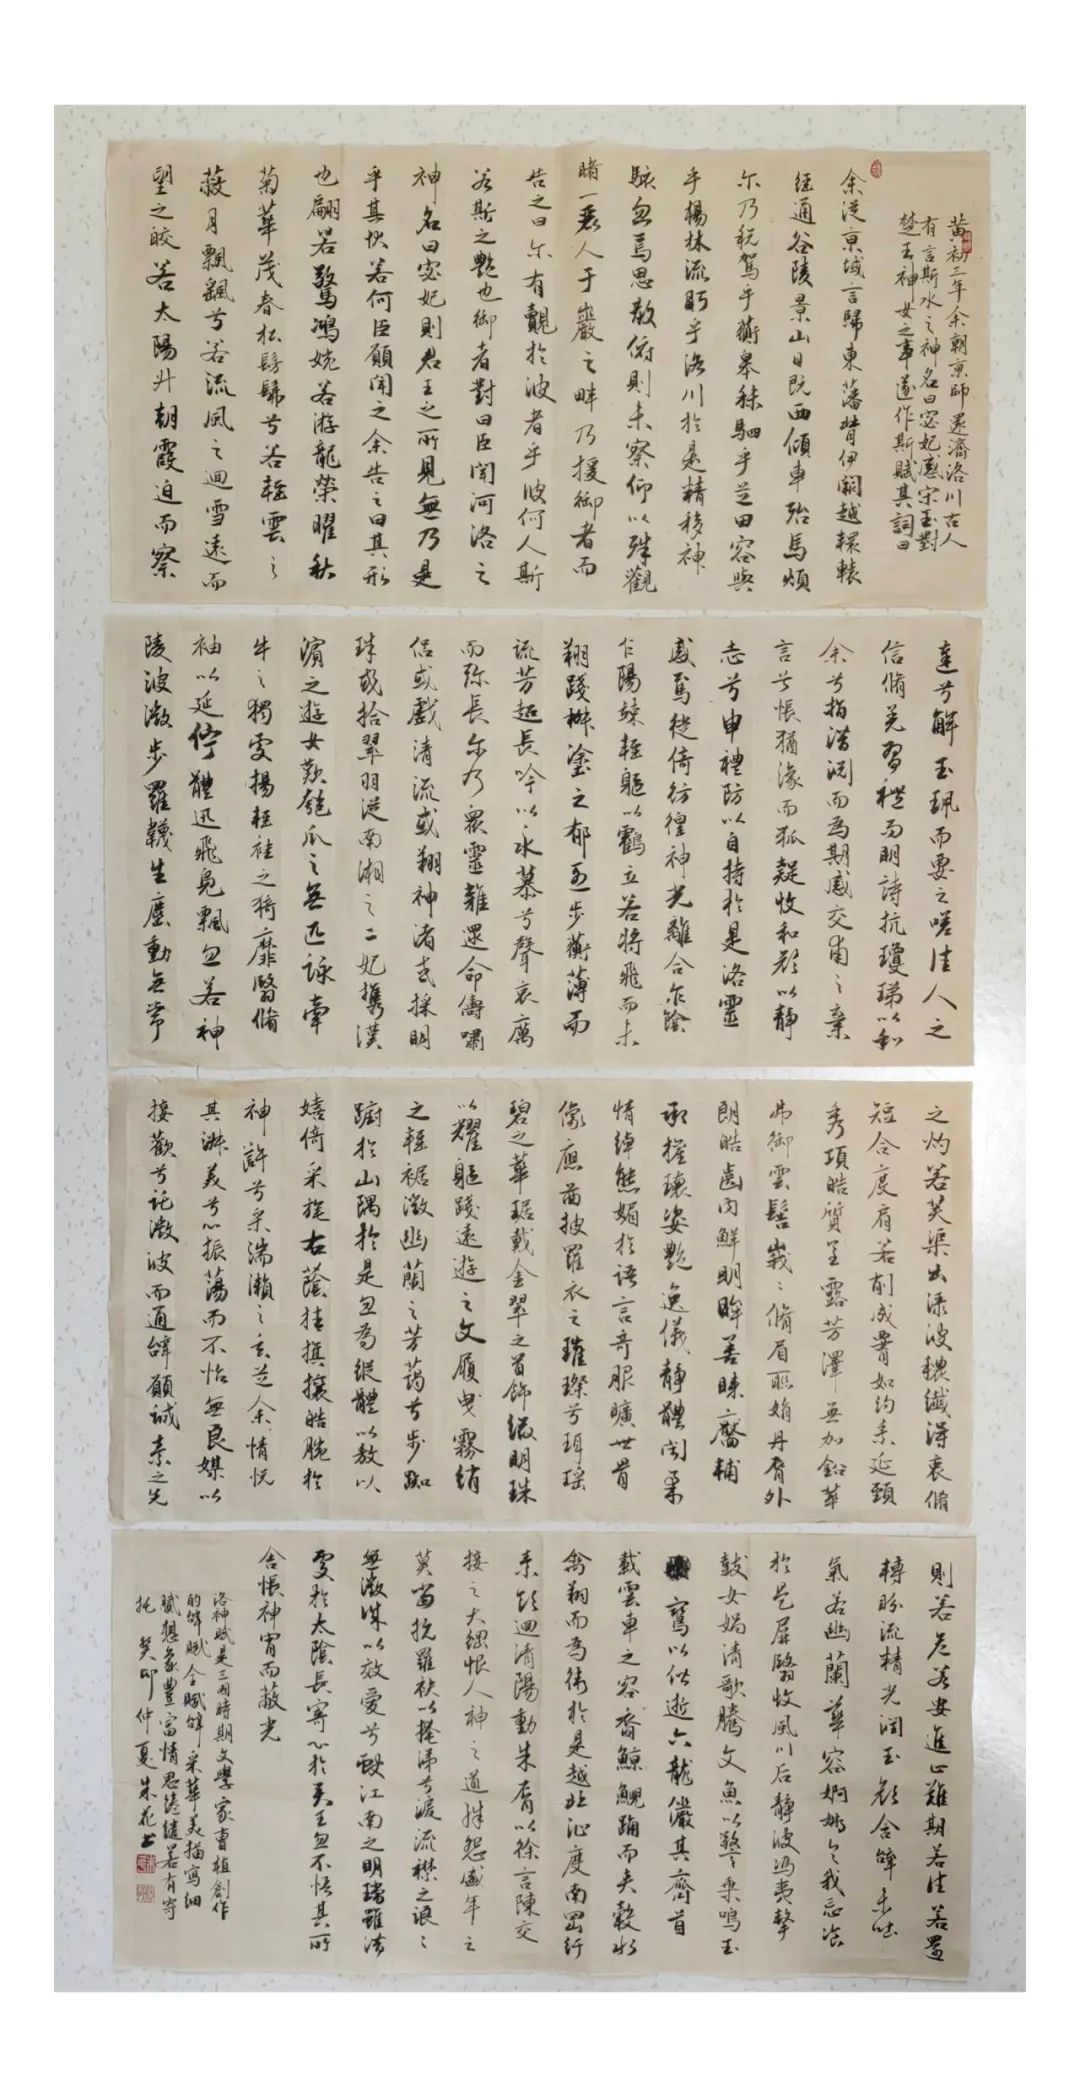 黄初三年余朝京師還濟洛川古人
有言斯水之神名曰宓妃感宋玉對
楚王神女之事遂作斯賦其詞曰
余從京域言歸東藩背伊闕越轘轅
經通谷陵景山日既西傾車殆馬煩
尔乃税駕乎蘅皋秣駟乎芝田容與
乎楊林流眄乎洛川於是精移神
駭忽焉思散俯則未察仰以殊觀
睹一麗人于巖之畔乃援御者而
告之曰尔有覿於彼者乎彼何人斯
若斯之艷也御者對曰臣聞河洛之
神名曰宓妃則君王之所見無乃是
乎其狀若何臣願聞之余告之曰其形
也翩若驚鴻婉若游龍榮曜秋
菊華茂春松髣髴兮若輕雲之
蔽月飄飖兮若流風之迴雪遠而
望之皎若太陽升朝霞迫而察
達兮解玉珮而要之嗟佳人之
信脩羌習禮而明詩抗瓊珶以和
余兮指潛淵而為期感交甫之棄
言兮悵猶豫而狐疑收和顏以靜
志兮申禮防以自持於是洛靈
感焉徙倚彷徨神光離合乍陰
乍陽竦輕軀以鶴立若將飛而未
翔踐椒塗之郁烈步蘅薄而
流芳超長吟以永慕兮聲哀厲
而弥長尔乃衆靈雜遝命儔嘯
侣或戲清流或翔神渚或採明
珠或拾翠羽從南湘之二妃攜漢
濱之遊女歎匏瓜之無匹詠牽
牛之獨處揚輕袿之猗靡翳脩
袖以延佇體迅飛鳧飄忽若神
陵波微步羅韤生塵動無常
之灼若芙渠出渌波穠纖得衷脩
短合度肩若削成署如約素延頸
秀項皓質呈露芳澤無加鉛華
弗御雲髻峩〻脩眉聯娟丹脣外
朗皓齒内鮮明眸善睞靨輔
承權瓌姿艷逸儀靜體閑柔
情綽態媚於語言奇服曠世骨
像應啚披羅衣之璀璨兮珥瑶
碧之華琚戴金翠之首飾綴明珠
以耀軀踐遠遊之文履曳霧綃
之輕裾微幽蘭之芳藹兮步踟
蹰於山隅於是忽焉縱體以敖以
嬉倚采旄右蔭桂旗攘皓腕於
神滸兮采湍瀨之玄芝余情悦
其淑美兮心振蕩而不怡無良媒以
接歡兮託微波而通辭願誠素之先
則若危若安進止難期若往若還
轉盼流精光潤玉顏含辭未吐
氣若幽蘭華容婀娜令我忘飡
於是屏翳收風川后靜波馮夷擊
鼓女媧清歌騰文魚以警乘鳴玉
鸞以偕逝六龍儼其齊首
載雲車之容裔鯨鯢踊而夾轂水
禽翔而為衛於是越北沚度南罡紆
素領迴清陽動朱脣以徐言陳交
接之大綱恨人神之道殊怨盛年之
莫當抗羅袂以掩涕兮淚流襟之浪〻
無微情以效愛兮獻江南之明璫雖潛
處於太陰長寄心於君王忽不悟其所
舍悵神宵而蔽光
洛神賦是三國時期文學家曹植創作
的辭賦全賦辭采華美描寫細
膩想象豐富情思繾綣若有寄
托 癸卯仲夏朱花书